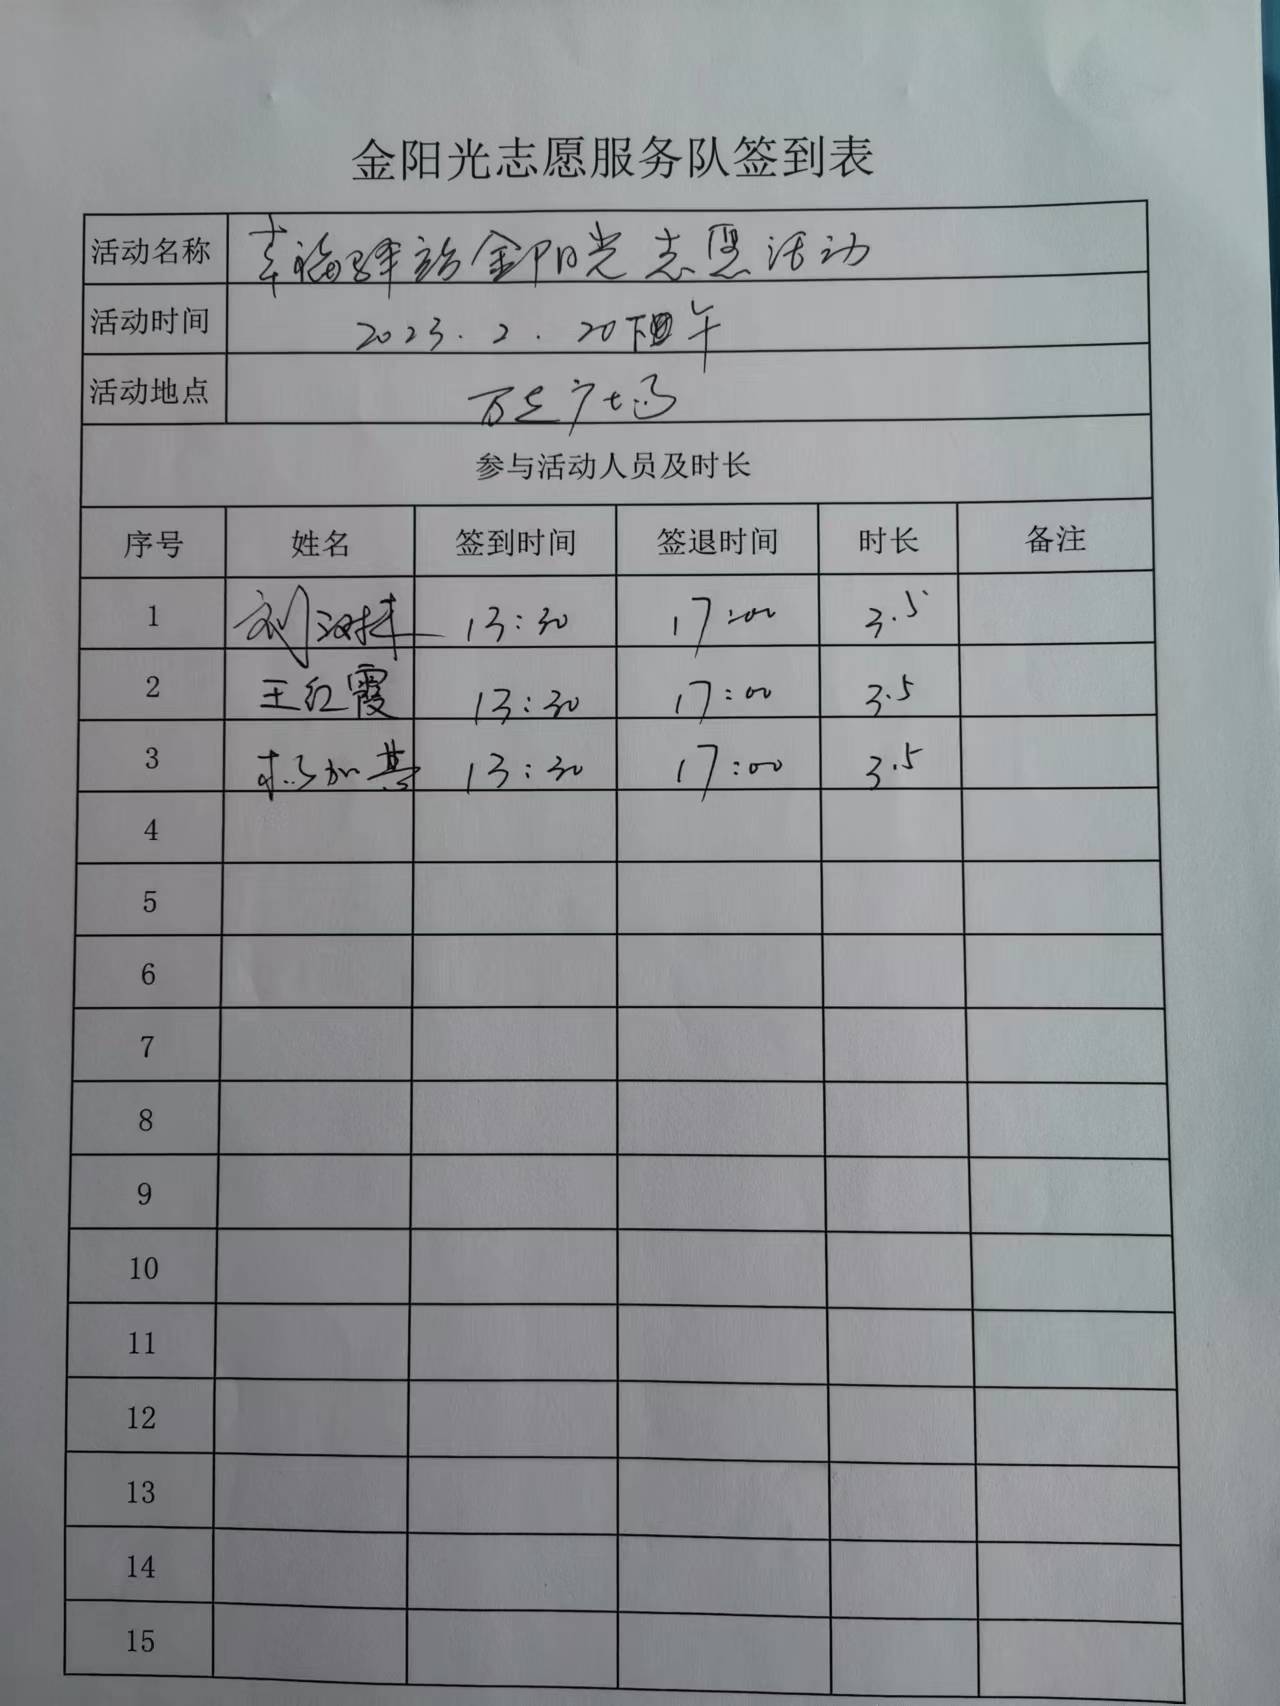 金阳光志愿服务队签到表
活动名称 幸福驿站金阳光志愿活动
活动时间 2023.2.20下午
活动地点 万达广场
参与活动人员及时长
序号 姓名 签到时间 签退时间 时长 备注
1 刘 13:30 17:00 3.5
2 王红霞 13:30 17:00 3.5
3 杨加其 13:30 17:00 3.5
4
5
6
7
8
9
10
11
12
13
14
15